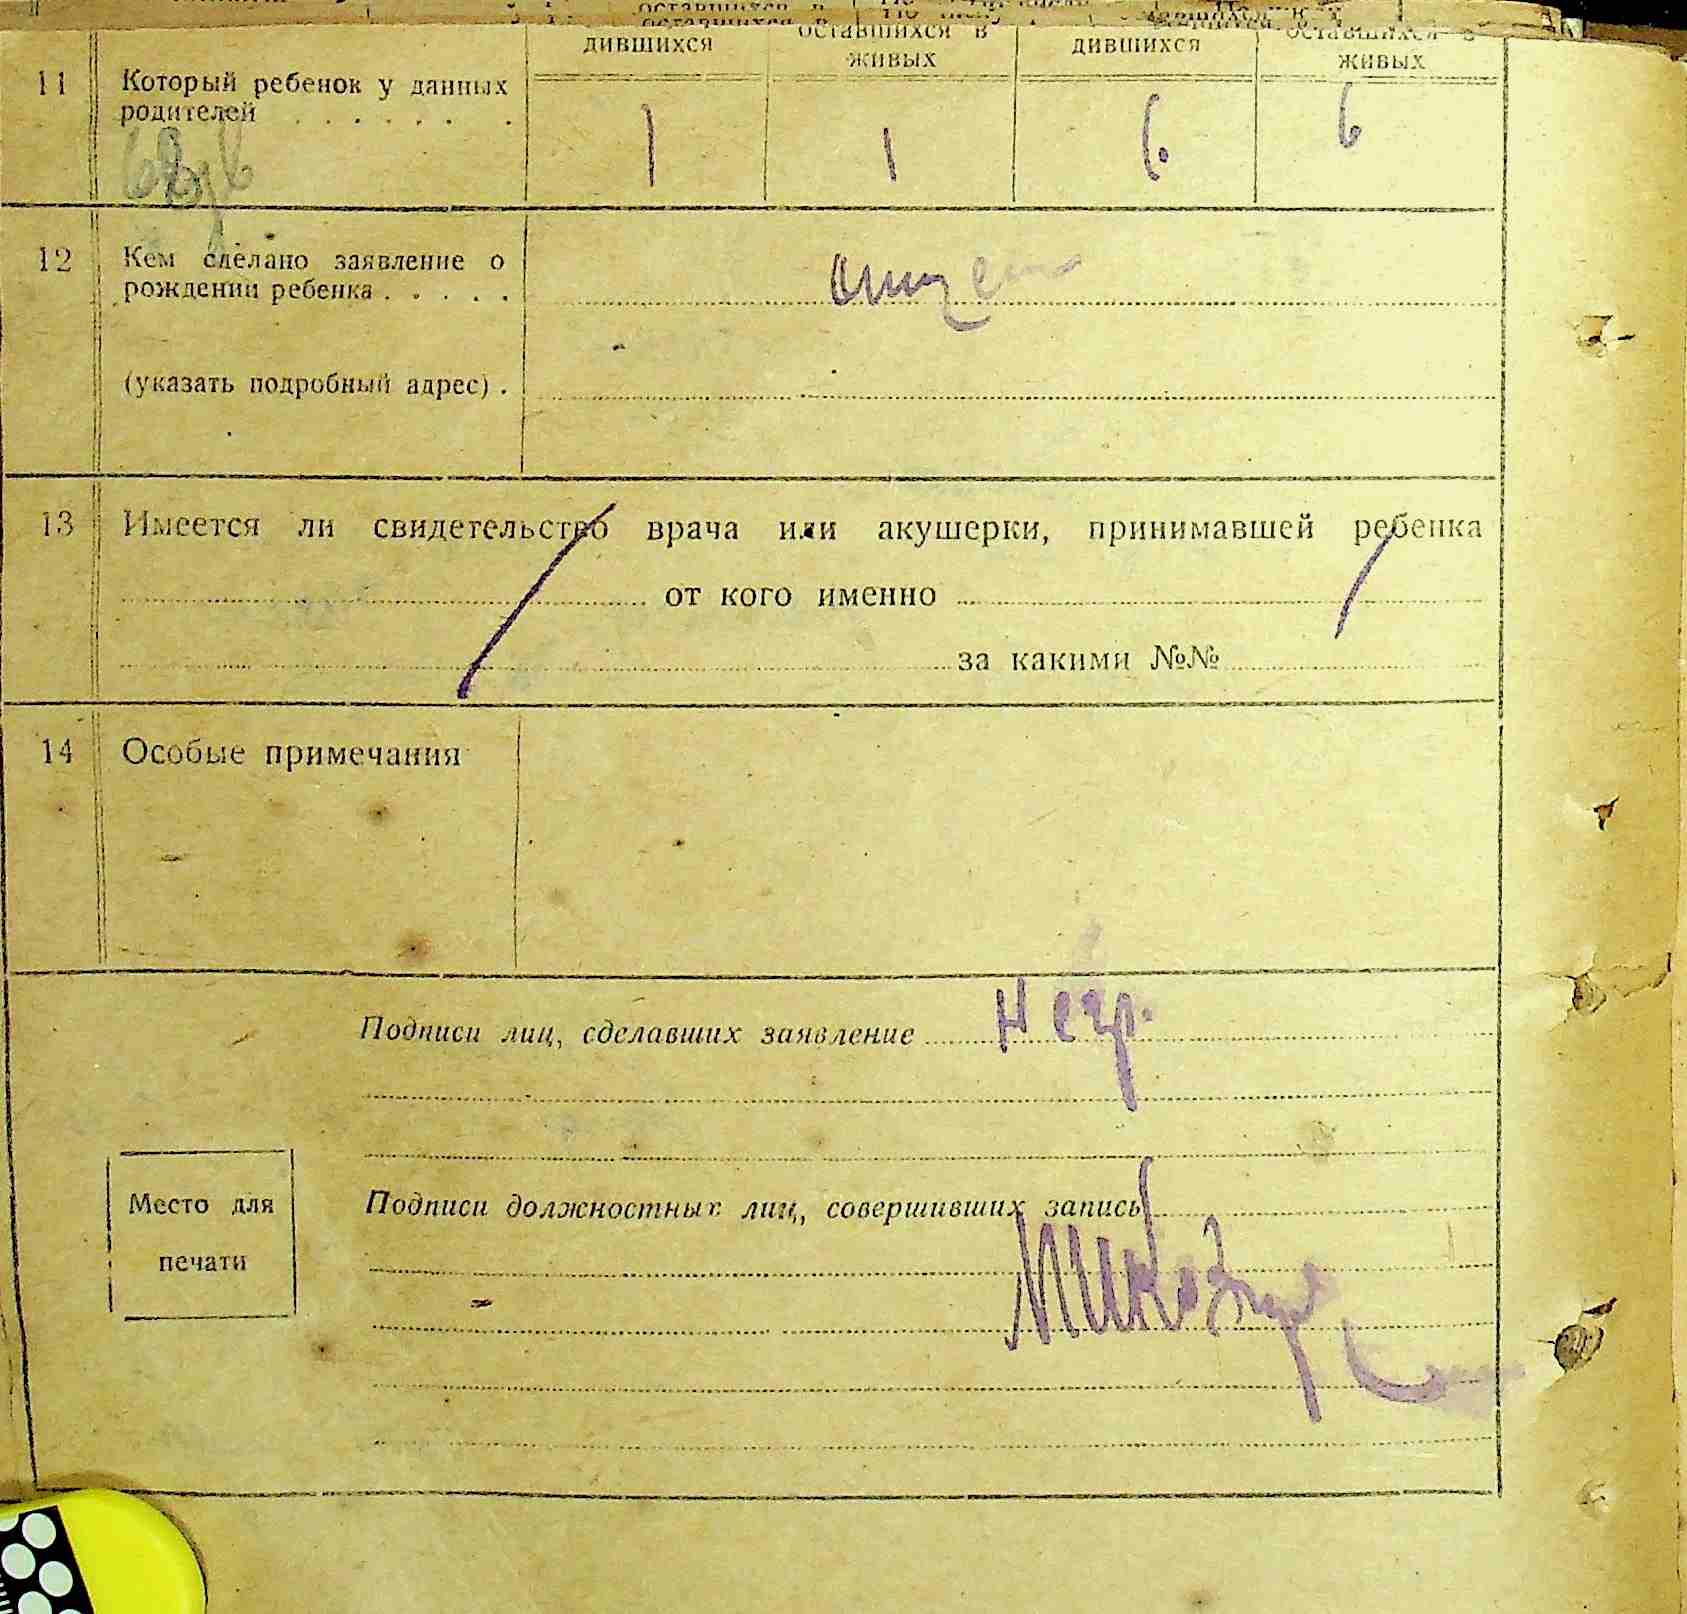 дившихся
оставшихся в
живых
дившихся
оставшихся в
живых
11
Который ребенок у данных
родителей . . . . . . .
1
1
6
6
12
Кем сделано заявление о
рождении ребенка . . . . .
отцом
(указать подробный адрес) .
13
Имеется ли свидетельство врача или акушерки, принимавшей ребенка
от кого именно
за какими №№
14
Особые примечания
Подписи лиц, сделавших заявление
негр.
Место для
печати
Подписи должностных лиц, совершивших запись